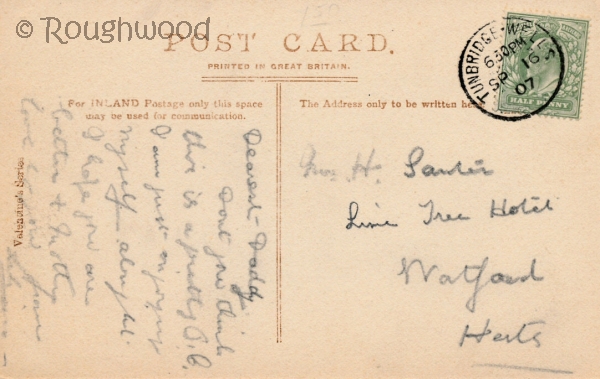 © Roughwood
POST CARD.
PRINTED IN GREAT BRITAIN.
TUNBRIDGE-WELLS
6.30PM
SP 16
07
HALF PENNY
For INLAND Postage only this space
may be used for communication.
The Address only to be written here
Valentine's Series
Dearest Daddy
Dont you think
this is a pretty P.C.
I am just enjoying
myself
I hope you are
better &
love
H. 
Lime Tree Hotel
Watford
Herts